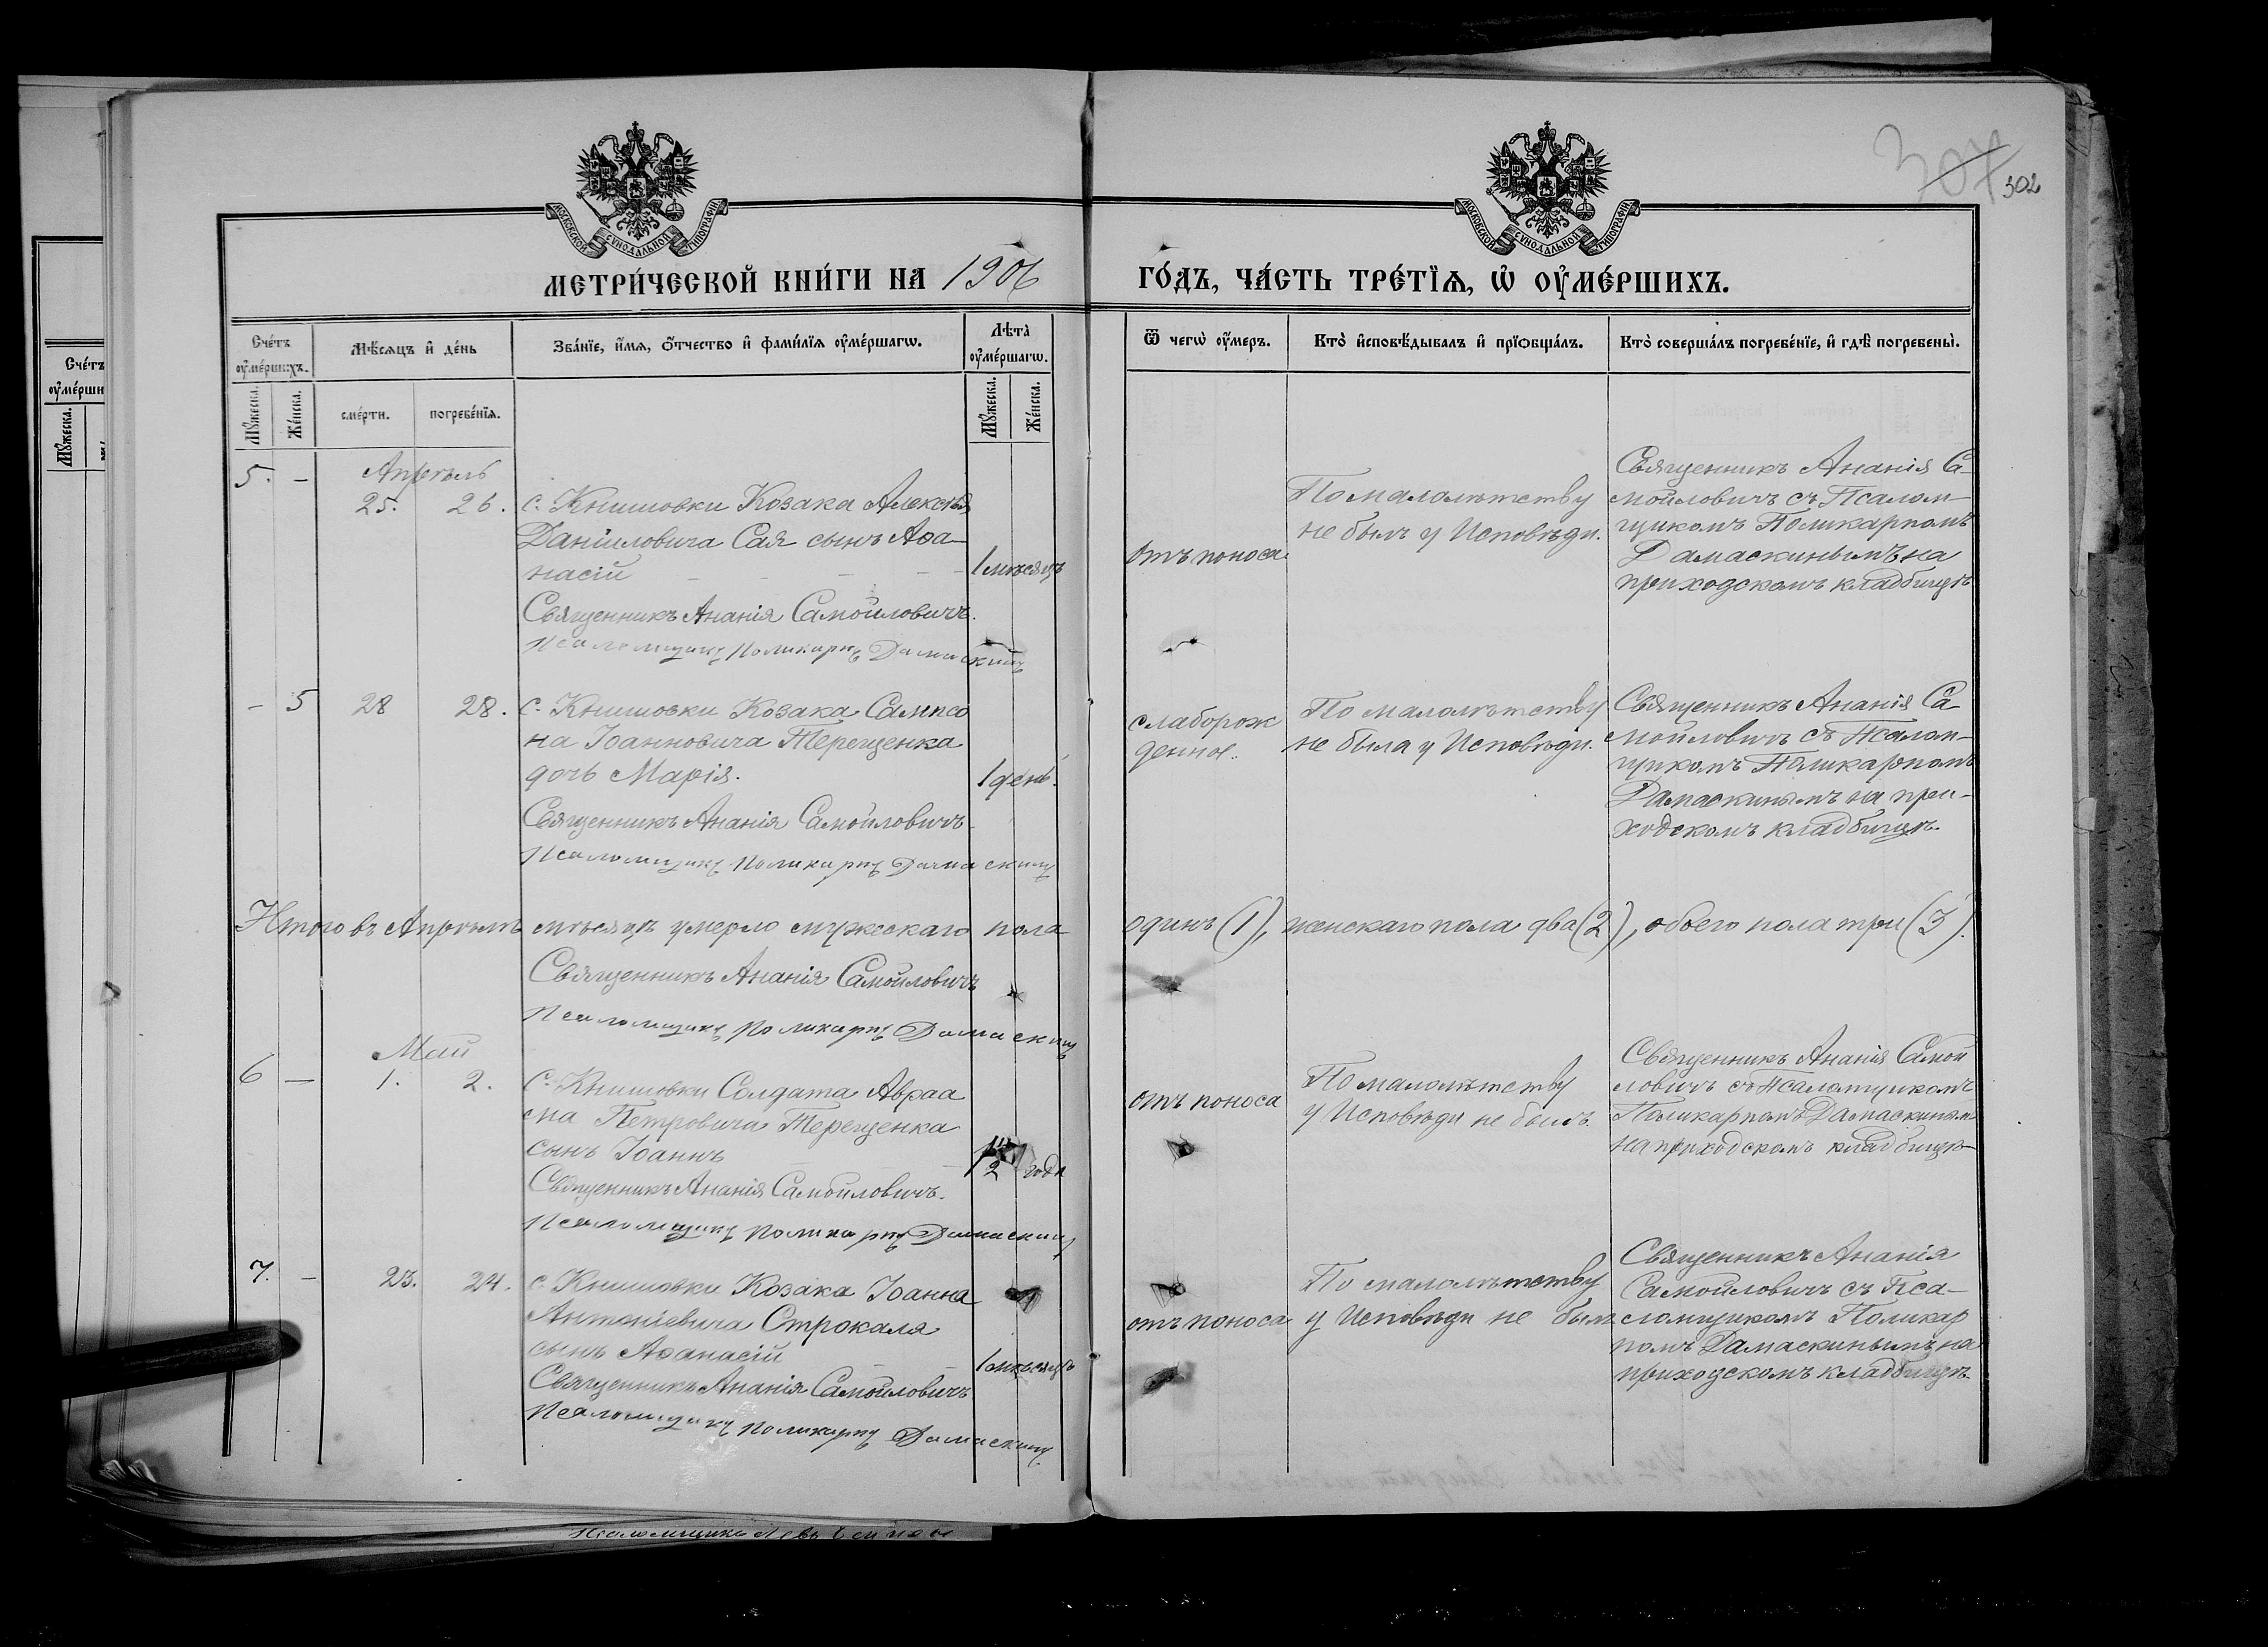 307
302
МОСКОВСКОЙ СѴНОДАЛЬНОЙ ТИПОГРАФІИ
МОСКОВСКОЙ СѴНОДАЛЬНОЙ ТИПОГРАФІИ
МЕТРИ́ЧЕСКОЙ КНИ́ГИ НА 1906
ГО́ДЪ, ЧА́СТЬ ТРЕ́ТЇѦ, Ѡ҆ ОУ҆МЕ́РШИХЪ.
Сче́тъ оу҆ме́ршихъ.
Мѣ́сѧцъ и҆ де́нь
Зва́нїе, и҆́мѧ, ѻ҆́тчество и҆ фами́лїѧ оу҆ме́ршагѡ.
Лѣта̀ оу҆ме́ршагѡ.
Ѿ чегѡ̀ оу҆́меръ.
Кто̀ и҆сповѣ́дывалъ и҆ прїѡбща́лъ.
Кто̀ соверша́лъ погребе́нїе, и҆ гдѣ̀ погребены̀.
Мꙋ́жеска.
Же́нска.
сме́рти.
погребе́нїѧ.
Мꙋ́жеска.
Же́нска.
5. - Апрѣль
25. 26. с. Книшовки Козака Алексѣя
Даніиловича Сая сынъ Аѳа-
насій
1 мѣсяцъ
Священникъ Ананія Самойловичъ.
Псаломщикъ Поликарпъ Дамаскинъ
отъ поноса
По малолѣтству
не былъ у Исповѣди.
Священникъ Ананія Са-
мойловичъ съ Псалом-
щикомъ Поликарпомъ
Дамаскинымъ на
приходскомъ кладбищѣ
- 5 28 28. с. Книшовки Козака Сампсо
на Іоанновича Терещенка
дочь Марія.
1 день.
Священникъ Ананія Самойловичъ
Псаломщикъ Поликарпъ Дамаскинъ
слаборож
денное.
По малолѣтству
не была у Исповѣди.
Священникъ Ананія Са-
мойловичъ съ Псалом-
щикомъ Поликарпомъ
Дамаскинымъ на при-
ходскомъ кладбищѣ.
Итого въ Апрѣлѣ мѣсяцѣ умерло мужескаго пола
одинъ (1), женскаго пола два (2), обоего пола три (3).
Священникъ Ананія Самойловичъ
Псаломщикъ Поликарпъ Дамаскинъ
Май
6 - 1. 2. с. Книшовки Солдата Авраа
ма Петровича Терещенка
сынъ Іоаннъ
года
Священникъ Ананія Самойловичъ.
Псаломщикъ Поликарпъ Дамаскинъ
отъ поноса
По малолѣтству
у Исповѣди не былъ.
Священникъ Ананія Самой
ловичъ съ Псаломщикомъ
Поликарпомъ Дамаскиным
на приходскомъ кладбищѣ
7. - 23. 24. с. Книшовки Козака Іоанна
Антоніевича Строкаля
сынъ Аѳанасій
1 мѣсяцъ
Священникъ Ананія Самойловичъ
Псаломщикъ Поликарпъ Дамаскинъ
отъ поноса
По малолѣтству
у Исповѣди не былъ
Священникъ Ананія
Самойловичъ съ Пса-
ломщикомъ Поликар
помъ Дамаскинымъ на
приходскомъ кладбищѣ.